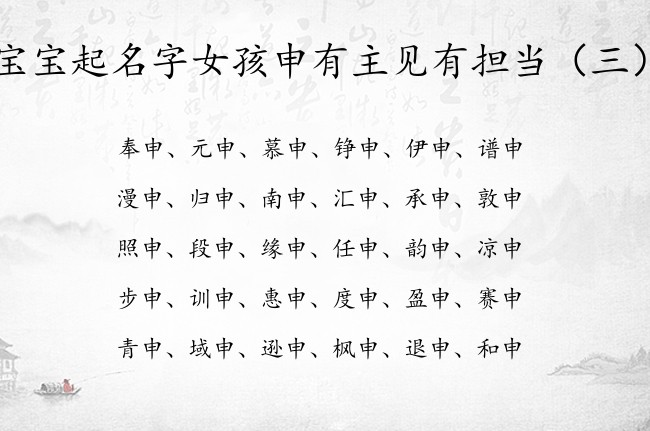 宝宝起名字女孩申有主见有担当（三）
奉申、元申、慕申、铮申、伊申、谱申
漫申、归申、南申、汇申、承申、敦申
照申、段申、缘申、任申、韵申、凉申
步申、训申、惠申、度申、盈申、赛申
青申、域申、逊申、枫申、退申、和申